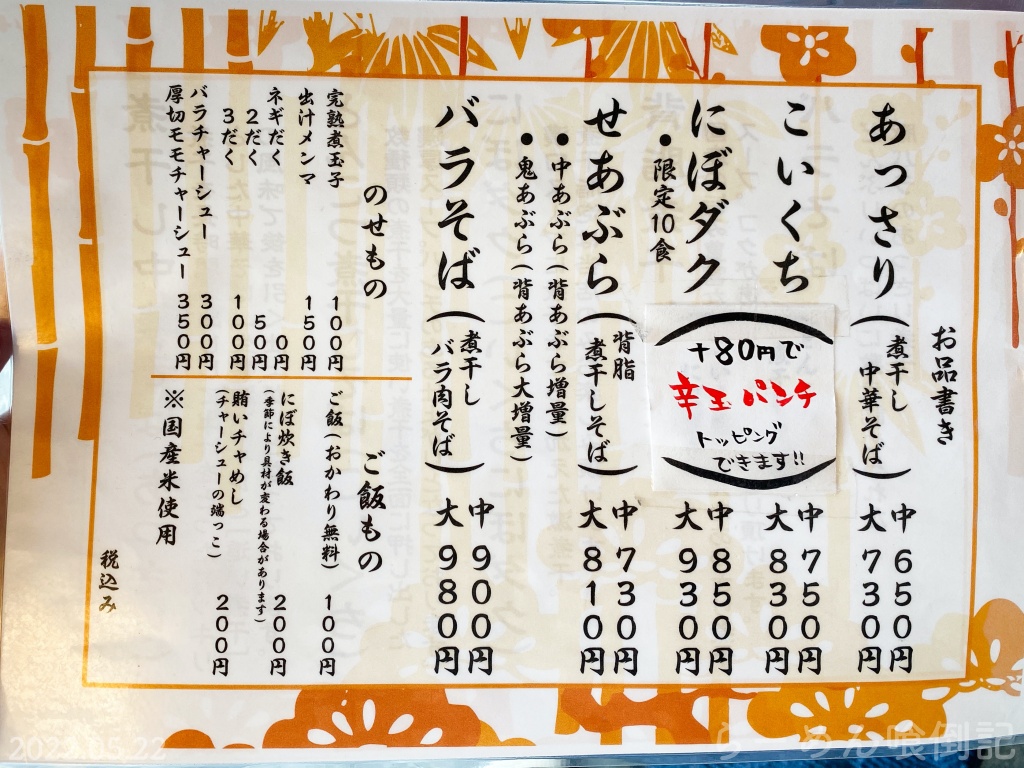 お品書き
あっさり(煮干し中華そば) 中 650円
大 730円
こいくち 中 750円
大 830円
+80円で
辛玉パンチ
トッピング
できます!!
にぼダク 中 850円
・限定10食 大 930円
せあぶら(背脂煮干しそば) 中 730円
大 810円
・中あぶら(背あぶら増量)
・鬼あぶら(背あぶら大増量)
バラそば(煮干しバラ肉そば) 中 900円
大 980円
のせもの
完熟煮玉子 100円
出汁メンマ 150円
ネギだく 0円
2だく 50円
3だく 100円
バラチャーシュー 300円
厚切モモチャーシュー 350円
ご飯もの
ご飯(おかわり無料) 100円
にぼ炊き飯 200円
(季節により具材が変わる場合があります)
賄いチャめし 200円
(チャーシューの端っこ)
※国産米使用
税込み
2022.05.22
らーめん喰倒記